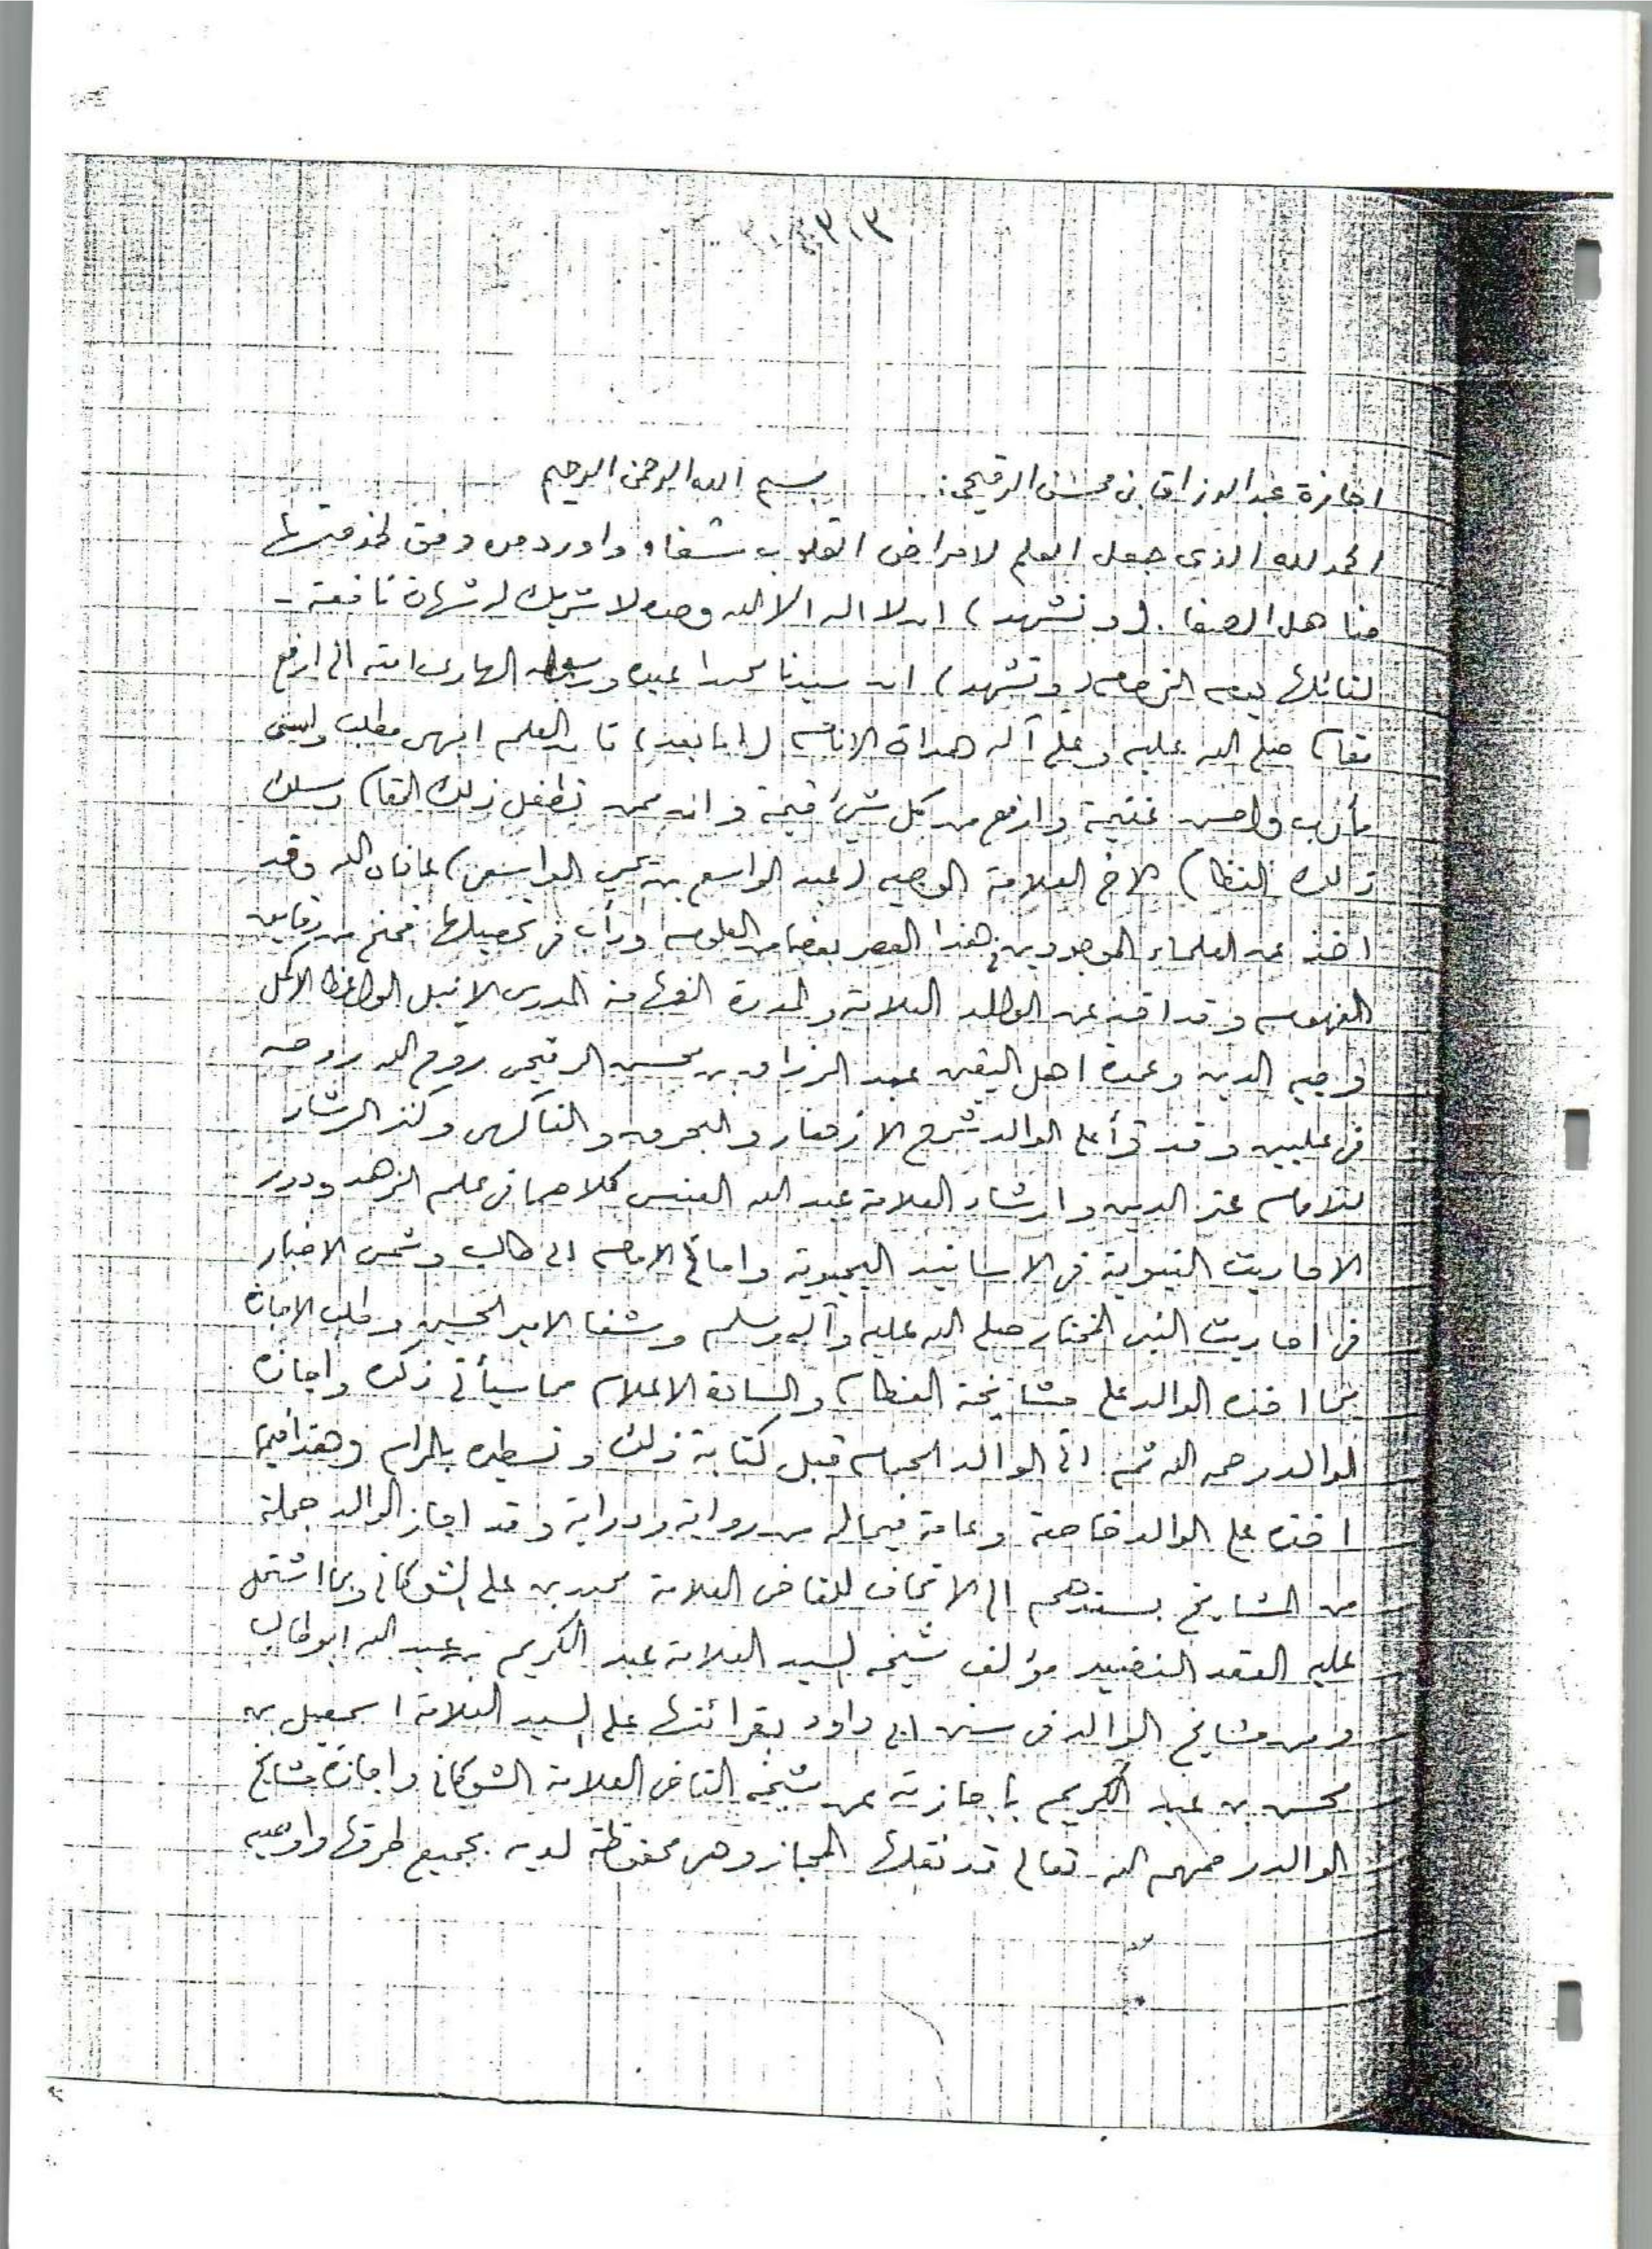 ٣٠٣
اجازة عبد الرزاق بن محسن الرقيحي: بسم الله الرحمن الرحيم
الحمد لله الذي جعل العلم لامراض القلوب شفاء واورد من وفق لخدمتها
مناهل الصفا. (ونشهد) ان لا اله الا الله وحده لا شريك له شهادة نافعة -
لقائلها يوم الزحام (ونشهد) ان سيدنا محمدا عبده ورسوله الهادي امته الى ارفع
مقام صلى الله عليه وعلى آله هداة الانام (اما بعد) فان العلم ابهى مطلب واسنى
مأرب واحسن غنيمة وارفع من كل شيء قيمة وان ممن تطفل ذلك المقام وسلك
ذلك النظام الاخ العلامة الوجيه (عبد الواسع بن يحيى الواسعي) عافاه الله وقد
اخذ عن العلماء الموجودين في هذا العصر بعضا من العلوم ودأب في تحصيلها فمنح من دقايق
الفهوم وقد اخذ عن الوالد العلامة والمدرة الفهامة المدرس الانبل الواعظ الاكمل
وجيه الدين وعمدة اهل اليقين عبد الرزاق بن محسن الرقيحي روح الله روحه
في عليين وقد قرأ على الوالد شرح الازهار والبحرق والفاكهي وكنز الرشاد
للامام عز الدين وارشاد العلامة عبد الله العنسي كلاهما في علم الزهد ودرر
الاحاديث النبوية في الاسانيد اليحيوية وامالي الامام ابي طالب وشمس الاخبار
في احاديث النبي المختار صلى الله عليه وآله وسلم وشفا الامير الحسين وطلب الاجازة
مما اخذه الوالد على مشايخة العظام والسادة الاعلام مما سيأتي ذكره واجازه
الوالد رحمه الله ثم اتى الوالد الحمام قبل كتابة ذلك وتسطيره بالمرام وهذا فيما
اخذه على الوالد خاصة وعامة فيما له من رواية ودراية وقد اجاز الوالد جملة
من المشايخ بسندهم الى الاتحاف للقاضي العلامة محمد بن علي الشوكاني وبما اشتمل
عليه العقد النضيد مؤلف شيخه السيد العلامة عبد الكريم بن عبد الله ابو طالب
ومن مشايخ الوالد في سنن ابي داود بقرائتها على السيد العلامة اسمعيل بن
محسن بن عبد الكريم باجازته عن شيخه القاضي العلامة الشوكاني واجازة مشايخ
الوالد رحمهم الله تعالى قد نقلها المجاز وهي محفوظة لديه بجميع طرقها واوعيه